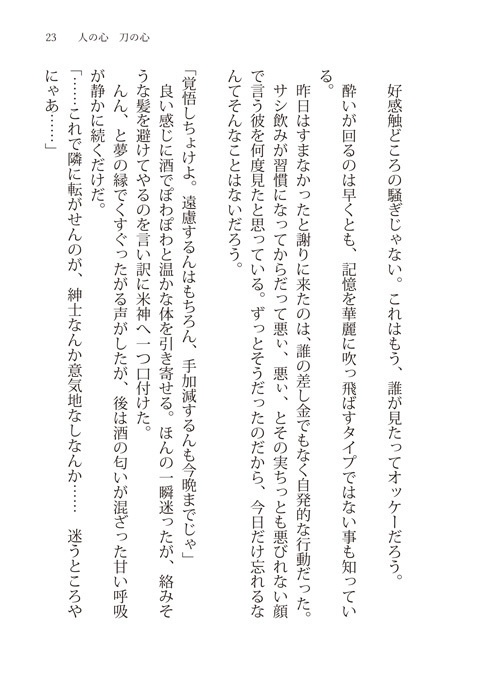 23　人の心　刀の心
好感触どころの騒ぎじゃない。これはもう、誰が見たってオッケーだろう。
酔いが回るのは早くとも、記憶を華麗に吹っ飛ばすタイプではない事も知ってい
る。
昨日はすまなかったと謝りに来たのは、誰の差し金でもなく自発的な行動だった。
サシ飲みが習慣になってからだって悪ぃ、悪ぃ、とその実ちっとも悪びれない顔
で言う彼を何度見たと思っている。ずっとそうだったのだから、今日だけ忘れるな
んてそんなことはないだろう。
「覚悟しちょけよ。遠慮するんはもちろん、手加減するんも今晩までじゃ」
良い感じに酒でぽわぽわと温かな体を引き寄せる。ほんの一瞬迷ったが、絡みそ
うな髪を避けてやるのを言い訳に米神へ一つ口付けた。
んん、と夢の縁でくすぐったがる声がしたが、後は酒の匂いが混ざった甘い呼吸
が静かに続くだけだ。
「……これで隣に転がせんのが、紳士なんか意気地なしなんか……　迷うところや
にゃあ……」